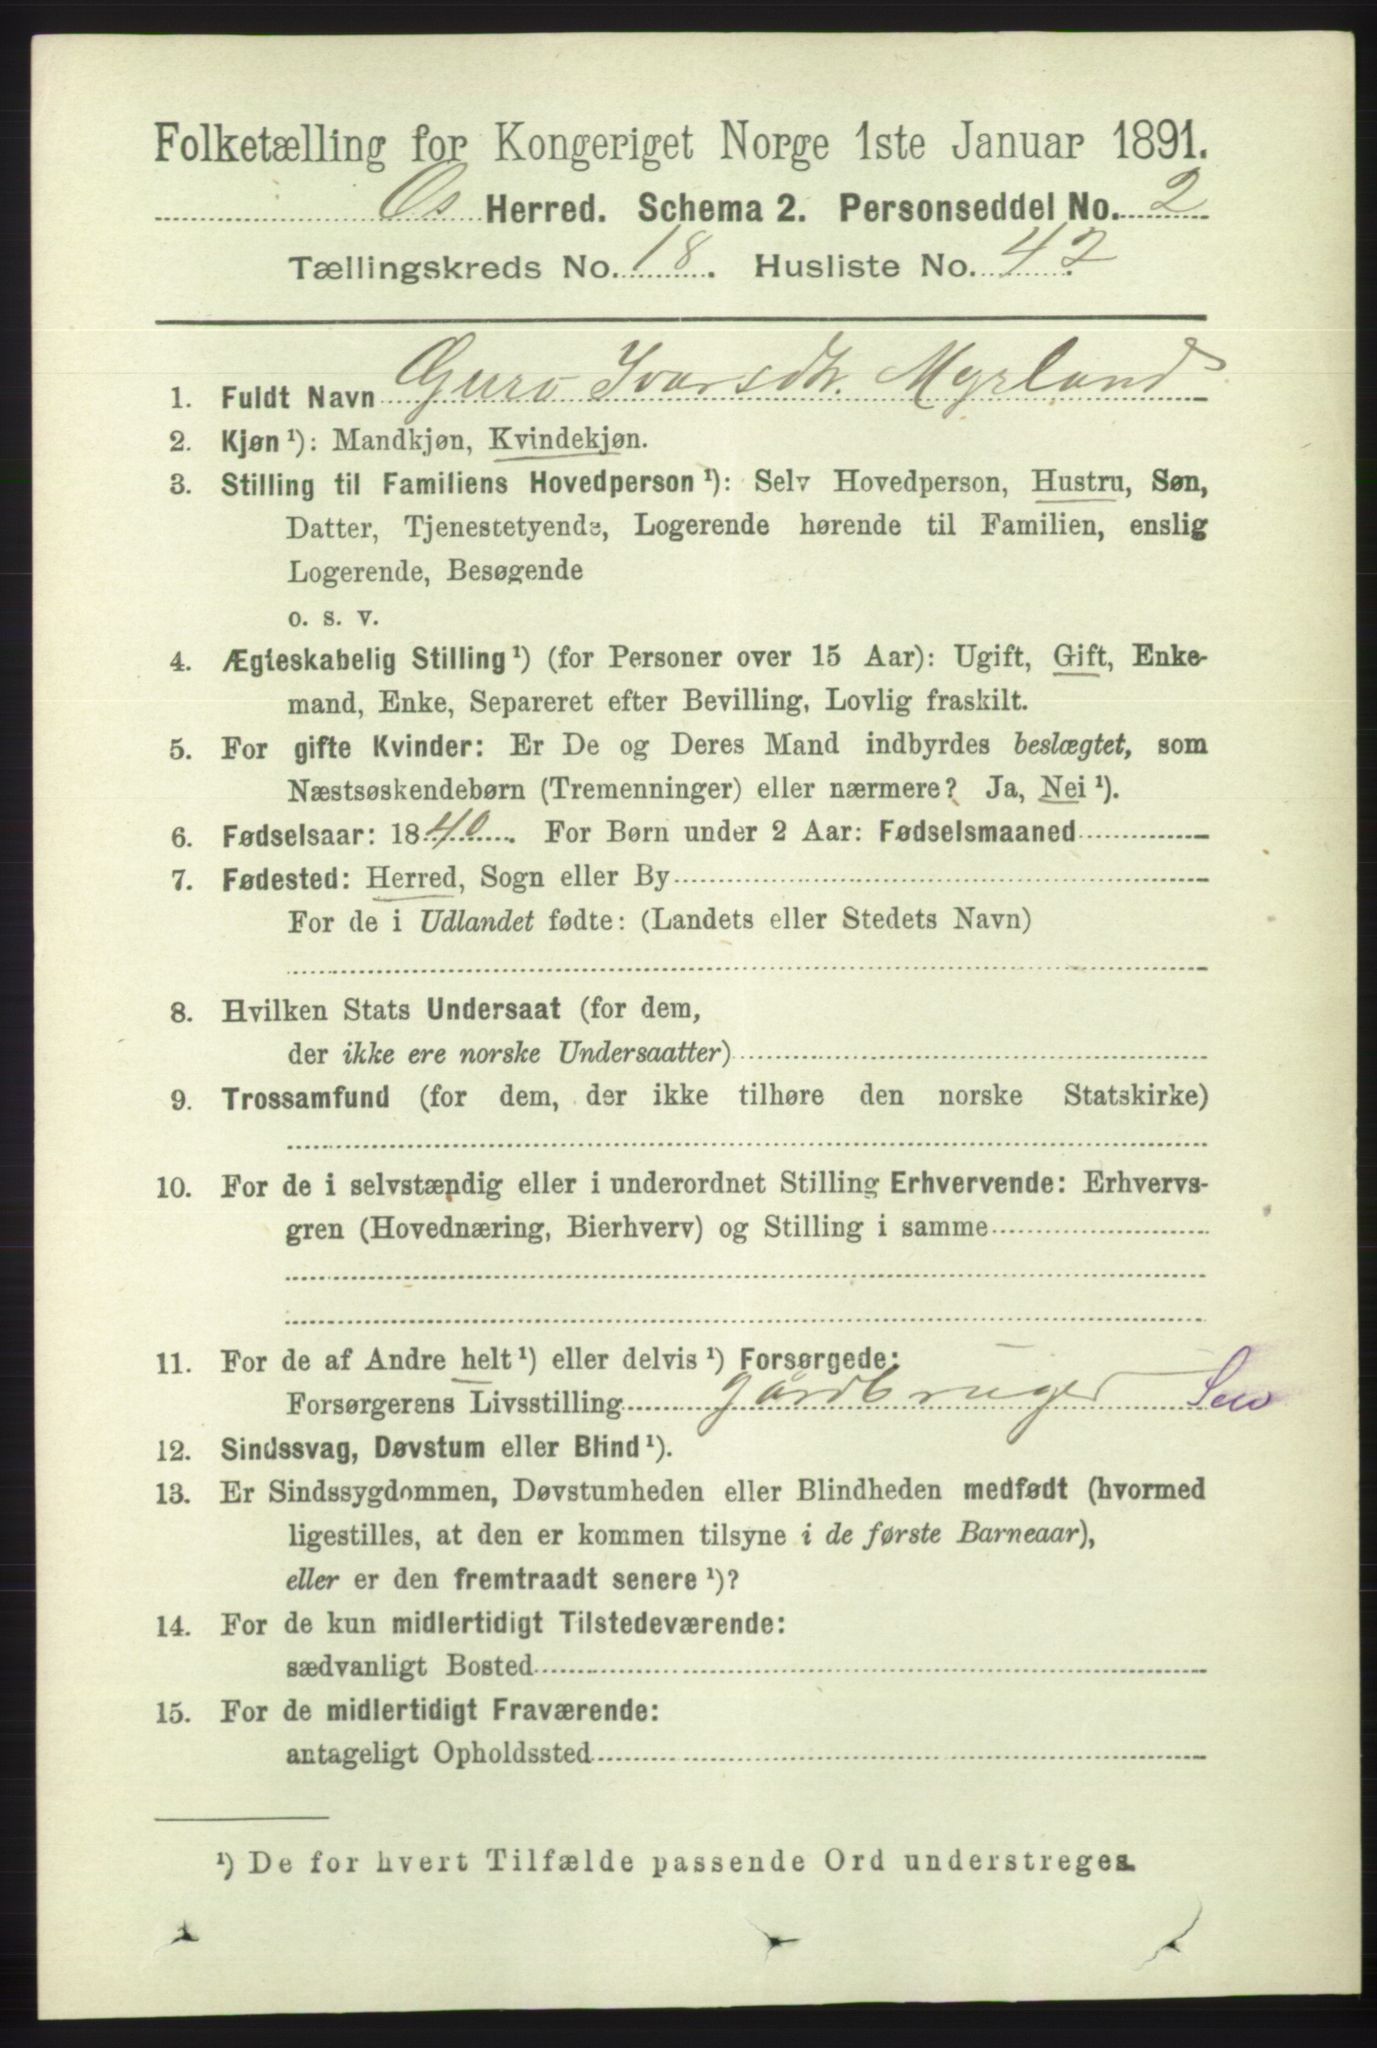 Folketælling for Kongeriget Norge 1ste Januar 1891.
Os Herred. Schema 2. Personseddel No. 2
Tællingskreds No. 18. Husliste No. 42
1. Fuldt Navn Guro Ivarsdtr. Myrland
2. Kjøn ¹): Mandkjøn, Kvindekjøn.
3. Stilling til Familiens Hovedperson ¹): Selv Hovedperson, Hustru, Søn,
Datter, Tjenestetyende, Logerende hørende til Familien, enslig
Logerende, Besøgende
o. s. v.
4. Ægteskabelig Stilling ¹) (for Personer over 15 Aar): Ugift, Gift, Enke-
mand, Enke, Separeret efter Bevilling, Lovlig fraskilt.
5. For gifte Kvinder: Er De og Deres Mand indbyrdes beslægtet, som
Næstsøskendebørn (Tremenninger) eller nærmere? Ja, Nei ¹).
6. Fødselsaar: 1840. For Børn under 2 Aar: Fødselsmaaned
7. Fødested: Herred, Sogn eller By
For de i Udlandet fødte: (Landets eller Stedets Navn)
8. Hvilken Stats Undersaat (for dem,
der ikke ere norske Undersaatter)
9. Trossamfund (for dem, der ikke tilhøre den norske Statskirke)
10. For de i selvstændig eller i underordnet Stilling Erhvervende: Erhvervs-
gren (Hovednæring, Bierhverv) og Stilling i samme
11. For de af Andre helt ¹) eller delvis ¹) Forsørgede:
Forsørgerens Livsstilling gårdbruger
12. Sindssvag, Døvstum eller Blind ¹).
13. Er Sindssygdommen, Døvstumheden eller Blindheden medfødt (hvormed
ligestilles, at den er kommen tilsyne i de første Barneaar),
eller er den fremtraadt senere ¹)?
14. For de kun midlertidigt Tilstedeværende:
sædvanligt Bosted
15. For de midlertidigt Fraværende:
antageligt Opholdssted
¹) De for hvert Tilfælde passende Ord understreges.